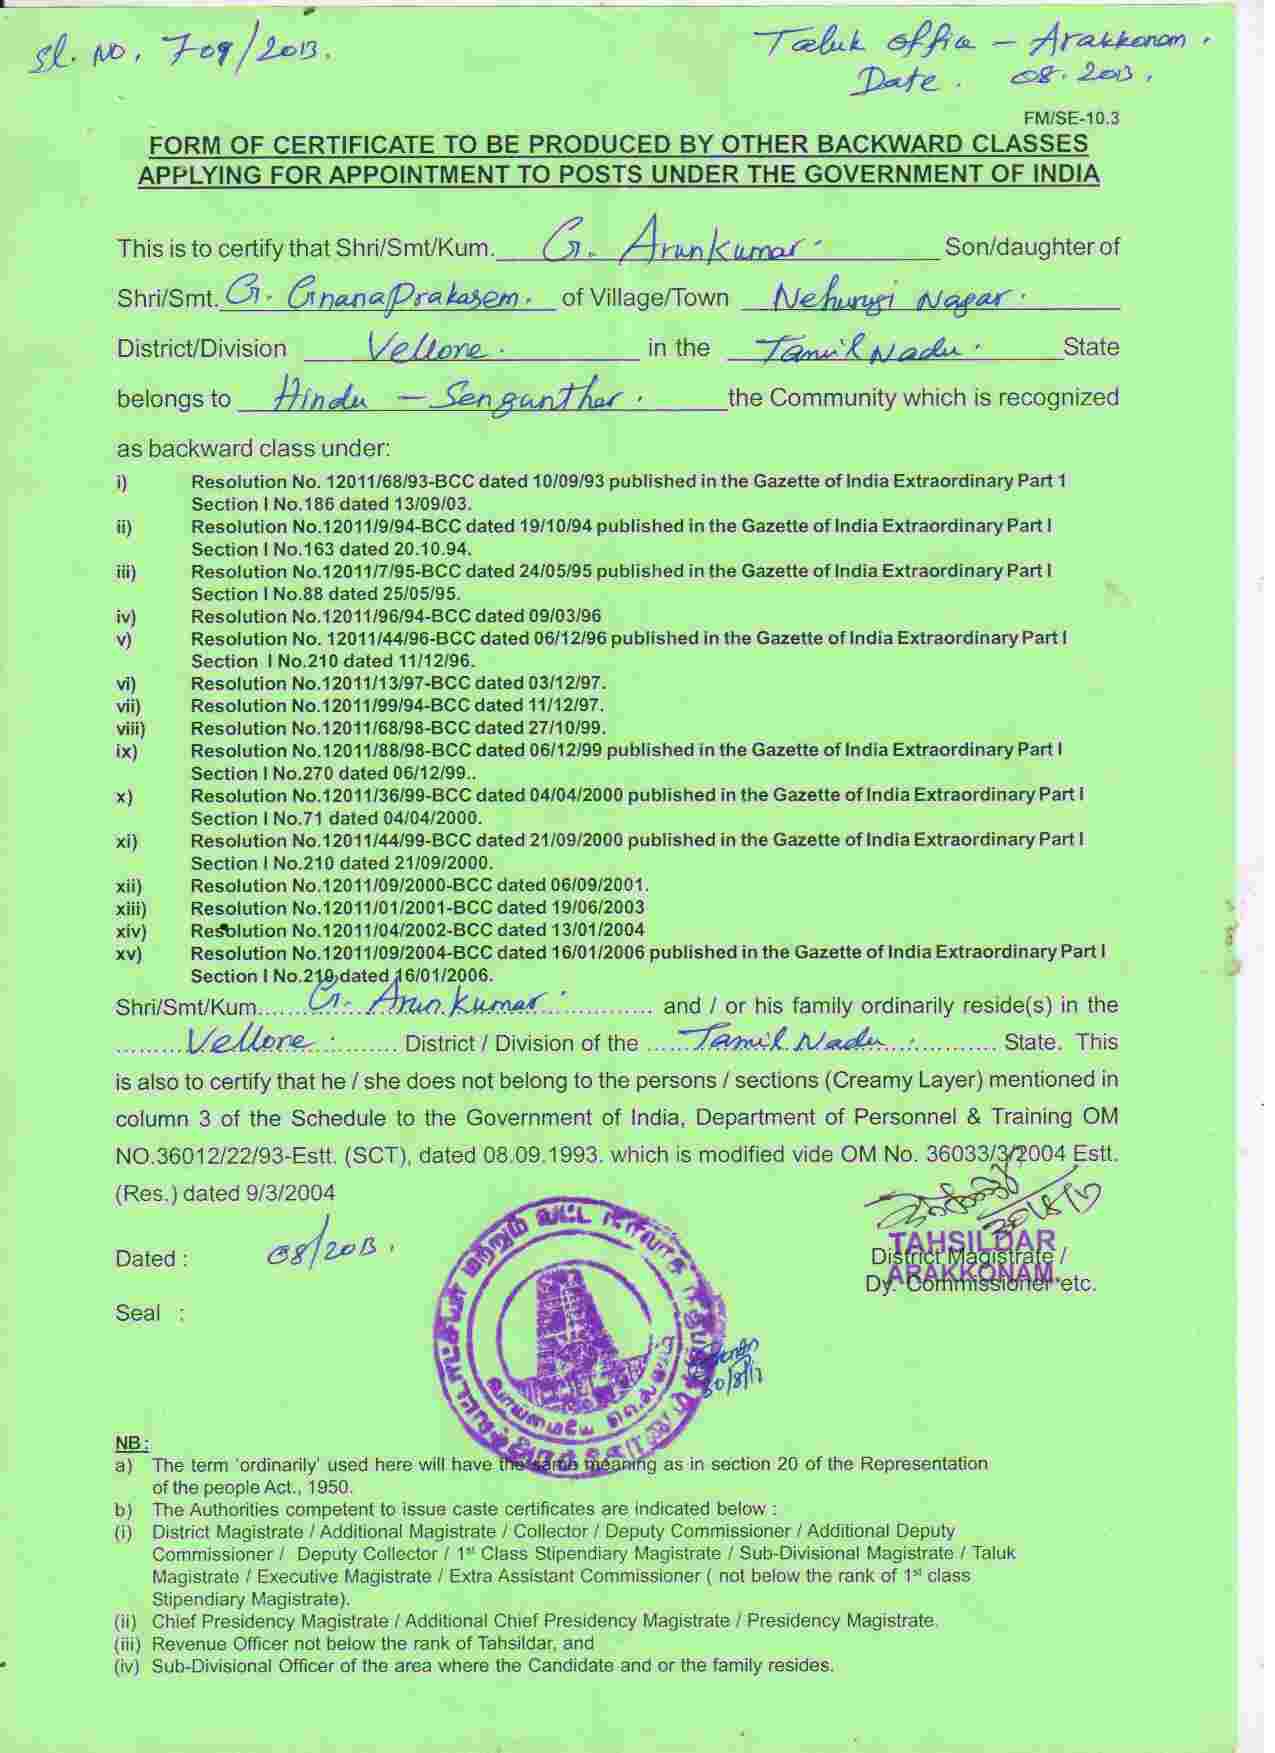 Sl. No. 709/2013.
Taluk Office - Arakkonam.
Date. 08.2013.
FM/SE-10.3
FORM OF CERTIFICATE TO BE PRODUCED BY OTHER BACKWARD CLASSES
APPLYING FOR APPOINTMENT TO POSTS UNDER THE GOVERNMENT OF INDIA
This is to certify that Shri/Smt/Kum. G. Arunkumar. Son/daughter of
Shri/Smt. G. Gnanaprakasem. of Village/Town Nehurugi Nagar.
District/Division Vellore. in the Tamil Nadu. State
belongs to Hindu - Senganther. the Community which is recognized
as backward class under:
i) Resolution No. 12011/68/93-BCC dated 10/09/93 published in the Gazette of India Extraordinary Part 1
Section I No.186 dated 13/09/03.
ii) Resolution No.12011/9/94-BCC dated 19/10/94 published in the Gazette of India Extraordinary Part I
Section I No.163 dated 20.10.94.
iii) Resolution No.12011/7/95-BCC dated 24/05/95 published in the Gazette of India Extraordinary Part I
Section I No.88 dated 25/05/95.
iv) Resolution No.12011/96/94-BCC dated 09/03/96
v) Resolution No. 12011/44/96-BCC dated 06/12/96 published in the Gazette of India Extraordinary Part I
Section I No.210 dated 11/12/96.
vi) Resolution No.12011/13/97-BCC dated 03/12/97.
vii) Resolution No.12011/99/94-BCC dated 11/12/97.
viii) Resolution No.12011/68/98-BCC dated 27/10/99.
ix) Resolution No.12011/88/98-BCC dated 06/12/99 published in the Gazette of India Extraordinary Part I
Section I No.270 dated 06/12/99..
x) Resolution No.12011/36/99-BCC dated 04/04/2000 published in the Gazette of India Extraordinary Part I
Section I No.71 dated 04/04/2000.
xi) Resolution No.12011/44/99-BCC dated 21/09/2000 published in the Gazette of India Extraordinary Part I
Section I No.210 dated 21/09/2000.
xii) Resolution No.12011/09/2000-BCC dated 06/09/2001.
xiii) Resolution No.12011/01/2001-BCC dated 19/06/2003
xiv) Resolution No.12011/04/2002-BCC dated 13/01/2004
xv) Resolution No.12011/09/2004-BCC dated 16/01/2006 published in the Gazette of India Extraordinary Part I
Section I No.210 dated 16/01/2006.
Shri/Smt/Kum. G. Arun Kumar. and / or his family ordinarily reside(s) in the
Vellore. District / Division of the Tamil Nadu. State. This
is also to certify that he / she does not belong to the persons / sections (Creamy Layer) mentioned in
column 3 of the Schedule to the Government of India, Department of Personnel & Training OM
NO.36012/22/93-Estt. (SCT), dated 08.09.1993. which is modified vide OM No. 36033/3/2004 Estt.
(Res.) dated 9/3/2004
Dated : 08/2013.
TAHSILDAR
District Magistrate /
ARAKKONAM.
Dy. Commissioner etc.
Seal :
30/8/13
NB:
a) The term 'ordinarily' used here will have the same meaning as in section 20 of the Representation
of the people Act., 1950.
b) The Authorities competent to issue caste certificates are indicated below :
(i) District Magistrate / Additional Magistrate / Collector / Deputy Commissioner / Additional Deputy
Commissioner / Deputy Collector / 1st Class Stipendiary Magistrate / Sub-Divisional Magistrate / Taluk
Magistrate / Executive Magistrate / Extra Assistant Commissioner ( not below the rank of 1st class
Stipendiary Magistrate).
(ii) Chief Presidency Magistrate / Additional Chief Presidency Magistrate / Presidency Magistrate.
(iii) Revenue Officer not below the rank of Tahsildar, and
(iv) Sub-Divisional Officer of the area where the Candidate and or the family resides.